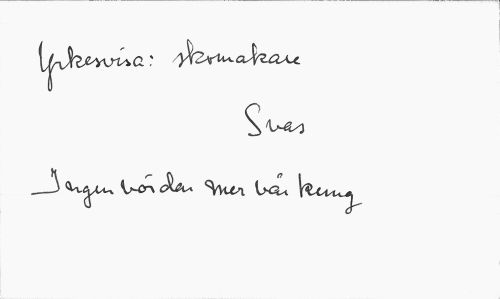 Yrkesvisa: skomakare
Svas
Ingen vörden mer vår kung